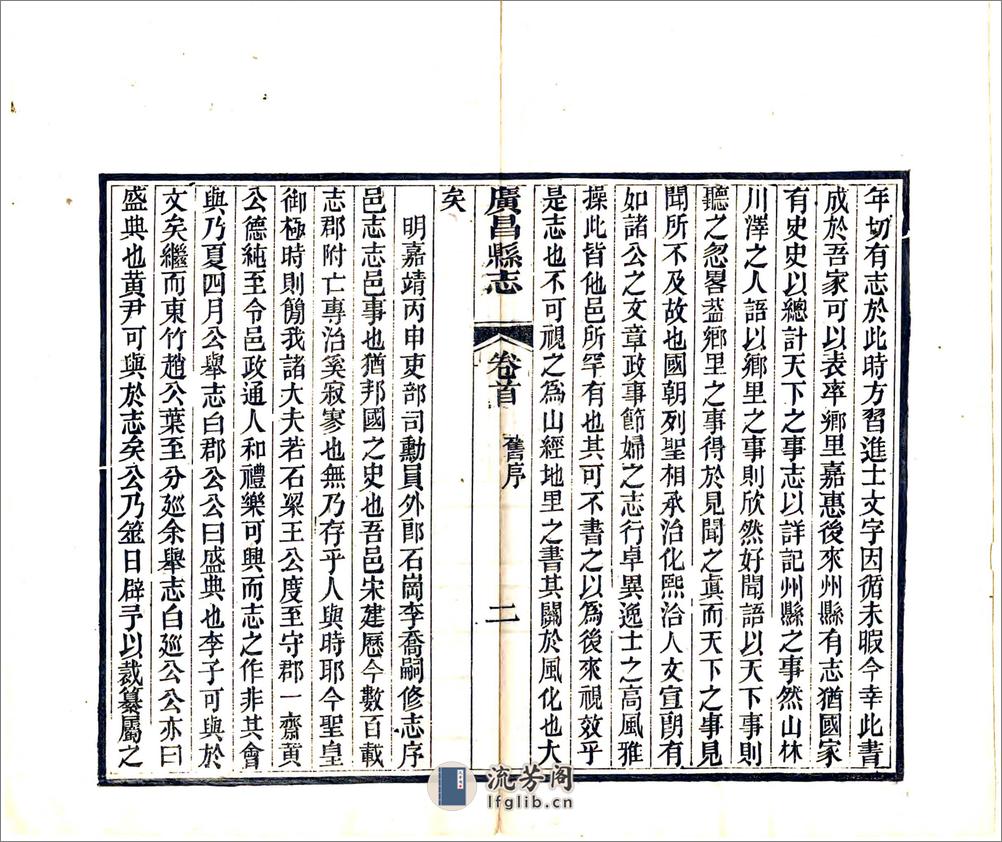 年切有志於此時方習進士文字因循未暇今幸此書
成於吾家可以表率鄉里嘉惠後來州縣有志猶國家
有史史以總計天下之事志以詳記州縣之事然山林
川澤之人語以鄉里之事則欣然好聞語以天下事則
聽之忽畧葢鄉里之事得於見聞之眞而天下之事見
聞所不及故也國朝列聖相承治化熙洽人文宣朗有
如諸公之文章政事節婦之志行卓異逸士之高風雅
操此皆他邑所罕有也其可不書之以為後來視效乎
是志也不可視之為山經地里之書其關於風化也大
矣
廣昌縣志
卷首
舊序
二
明嘉靖丙申吏部司勳員外郎石崗李喬嗣修志序
邑志志邑事也猶邦國之史也吾邑宋建歷今數百載
志郡附亡專治奚寂寥也無乃存乎人與時耶今聖皇
御極時則簡我諸大夫若石梁王公度至守郡一齋黃
公德純至令邑政通人和禮樂可興而志之作非其會
與乃夏四月公舉志白郡公公曰盛典也李子可與於
文矣繼而東竹趙公葉至分巡余舉志白巡公公亦曰
盛典也黃尹可與於志矣公乃筮日辟予以裁纂屬之
流芳阁
lfglib.cn